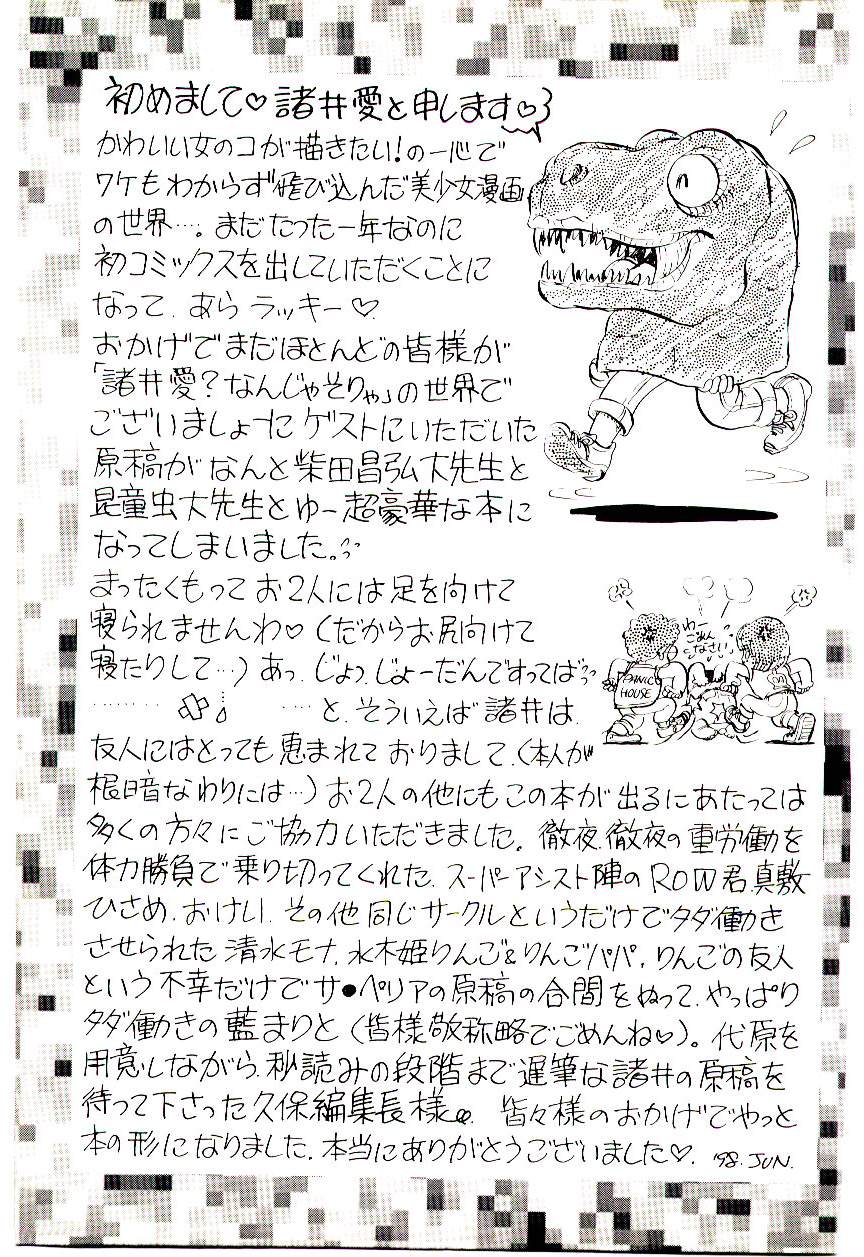 初めまして♡諸井愛と申します♡
かわいい女のコが描きたい！の一心で
ワケもわからず飛び込んだ美少女漫画
の世界…。まだたった一年なのに
初コミックスを出していただくことに
なって、あらラッキー♡
おかげでまだほとんどの皆様が
「諸井愛？なんじゃそりゃ」の世界で
ございましょーに ゲストにいただいた
原稿がなんと柴田昌弘大先生と
昆童虫大先生とゆー超豪華な本に
なってしまいました。
まったくもってお2人には足を向けて
寝られませんわ♡（だからお尻向けて
寝たりして…）あっ、じょっ、じょーだんですってば
……… …と、そういえば諸井は、
友人にはとっても恵まれておりまして、（本人が
根暗なわりには…）お2人の他にもこの本が出るにあたっては
多くの方々にご協力いただきました。徹夜、徹夜の重労働を
体力勝負で乗り切ってくれた、スーパーアシスト陣のROW君、真敷
ひさめ、おけい、その他同じサークルというだけでタダ働き
させられた清水モナ、水木姫りんご&りんごパパ、りんごの友人
という不幸だけでサ●ペリアの原稿の合間をぬって、やっぱり
タダ働きの藍まりと（皆様敬称略でごめんね♡）。代原を
用意しながら、秒読みの段階まで遅筆な諸井の原稿を
待って下さった久保編集長様。皆々様のおかげでやっと
本の形になりました。本当にありがとうございました♡. '98. JUN.
わーごめんなさい
PANIC
HOUSE